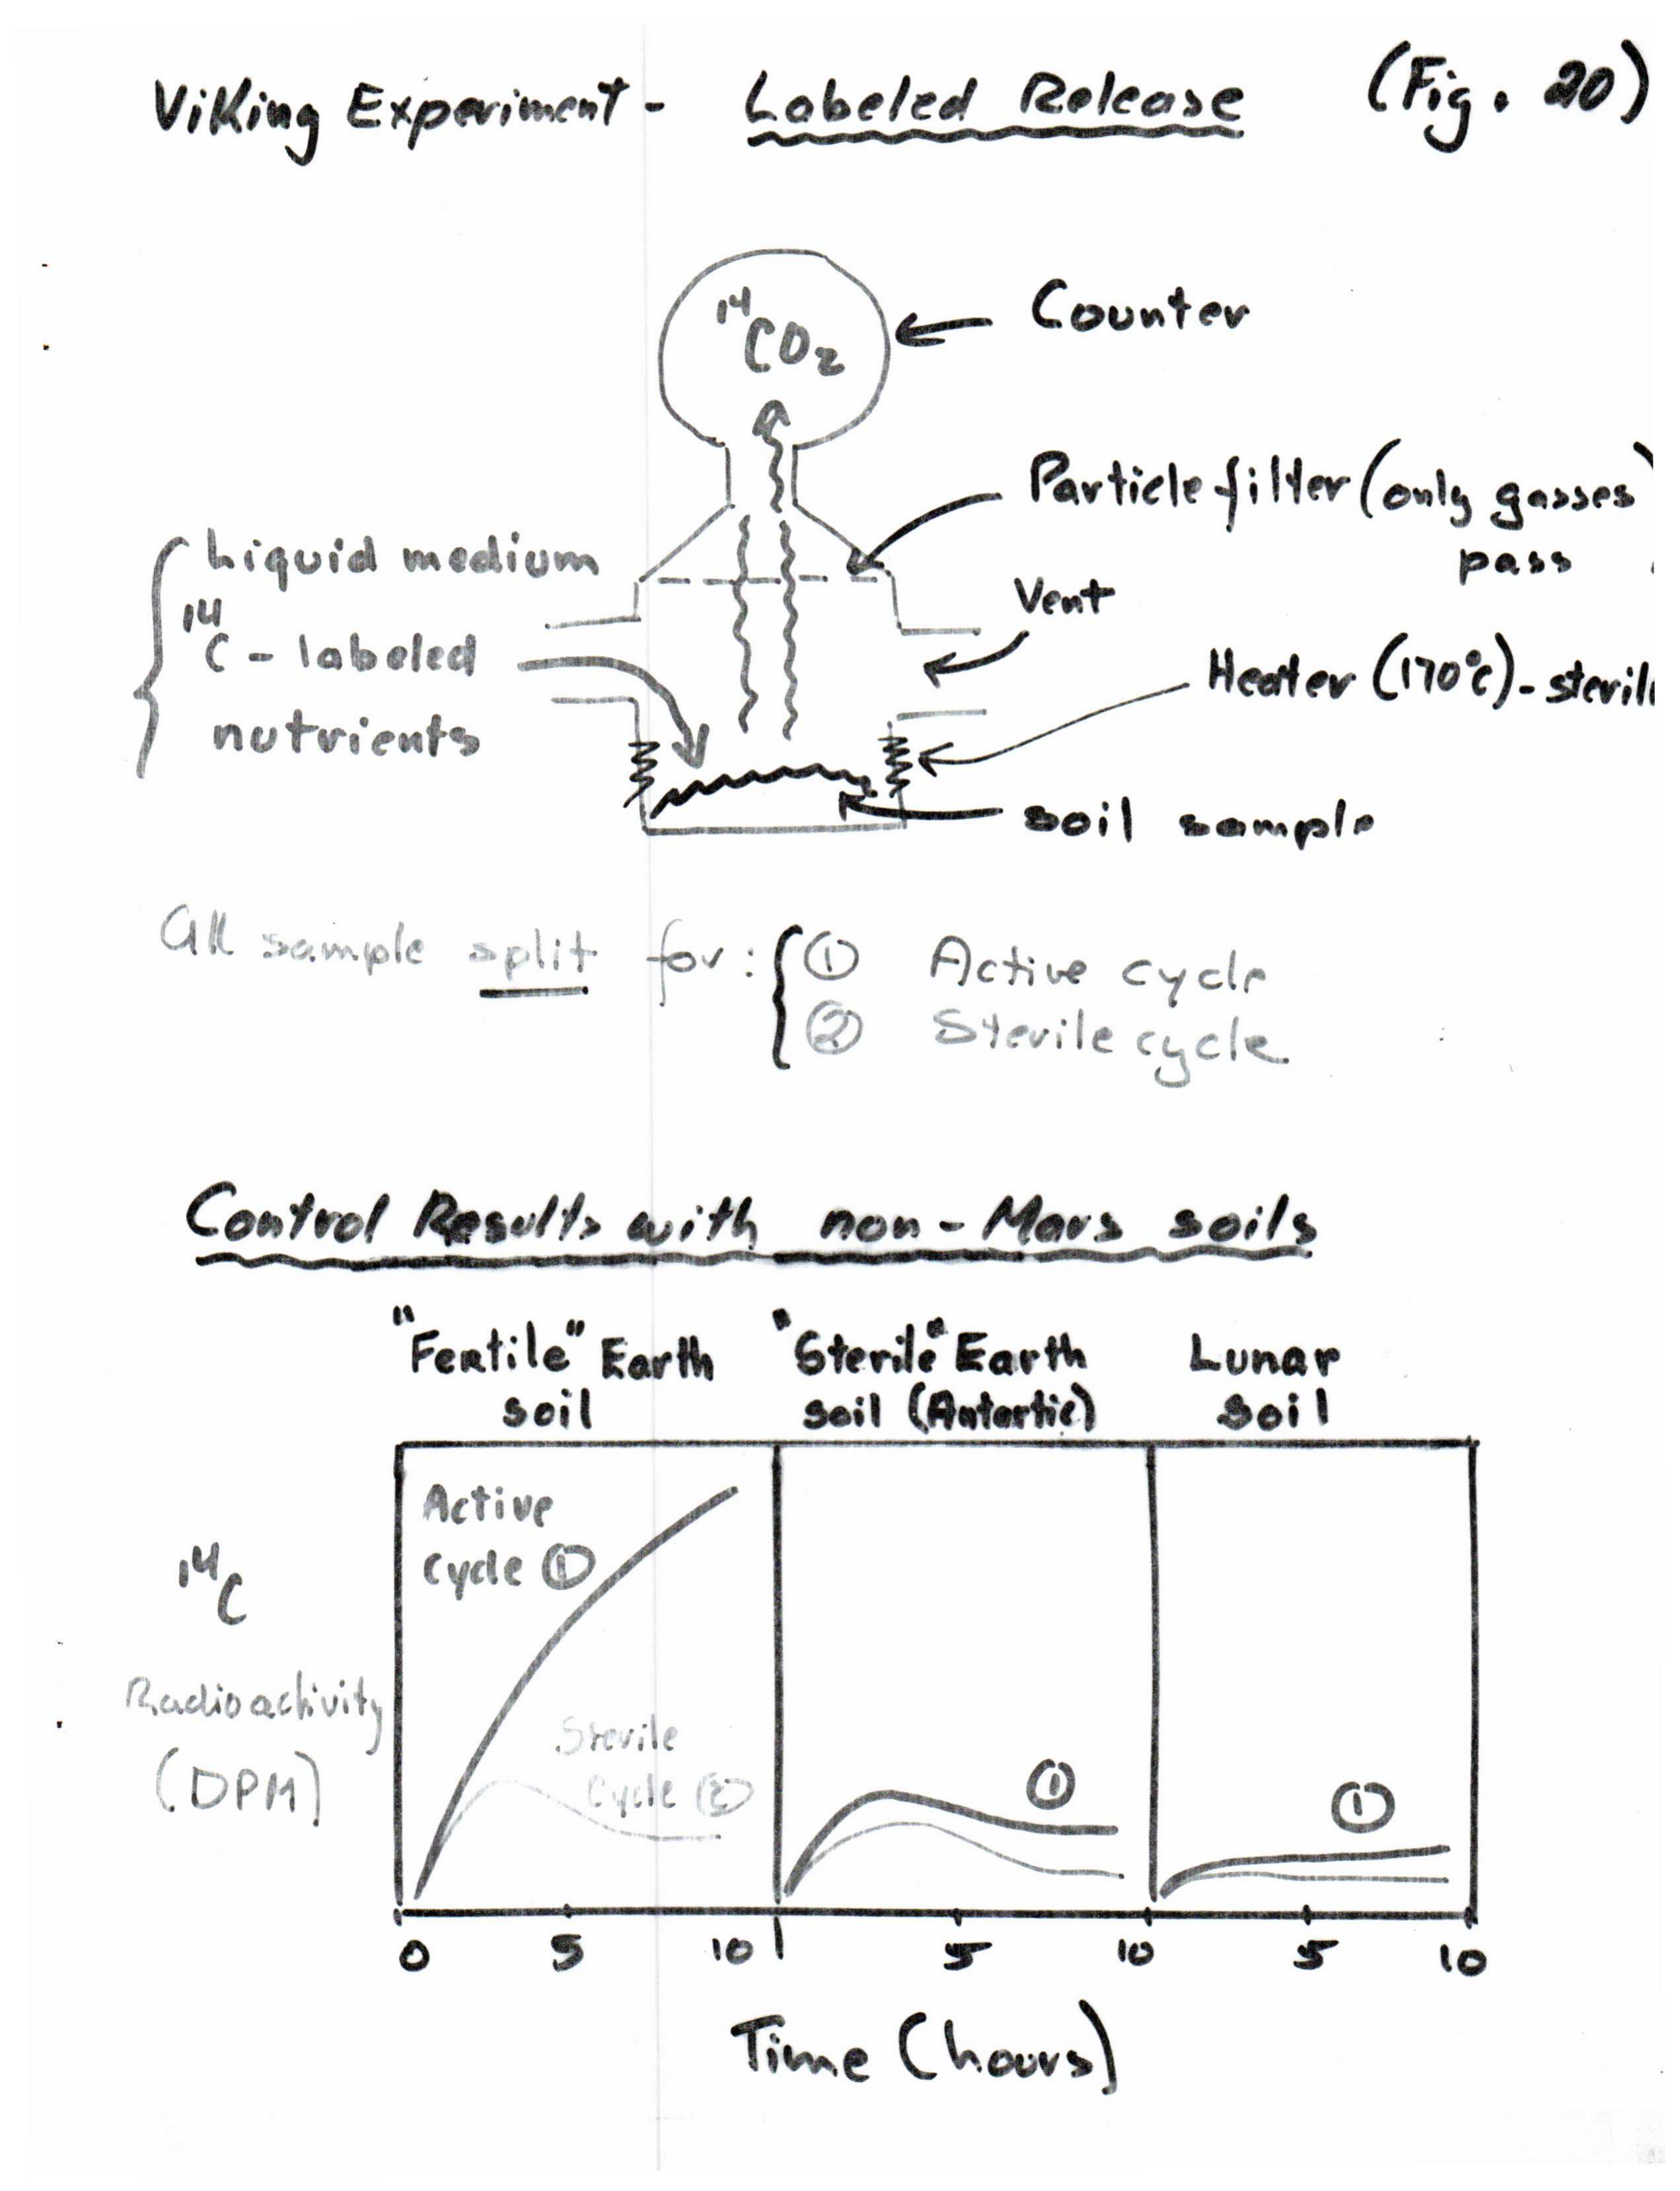 Viking Experiment - Labeled Release (Fig. 20)
14CO2
Counter
Particle filter (only gasses
pass
Vent
Heater (170°c) - steril
soil sample
Liquid medium
14C - labeled
nutrients
All sample split for: ① Active cycle
② Sterile cycle
Control Results with non-Mars soils
"Fertile" Earth
soil
"Sterile" Earth
soil (Antartic)
Lunar
soil
Active
cycle ①
Sterile
Cycle ②
①
①
14C
Radioactivity
(DPM)
0 5 10 5 10 5 10
Time (hours)